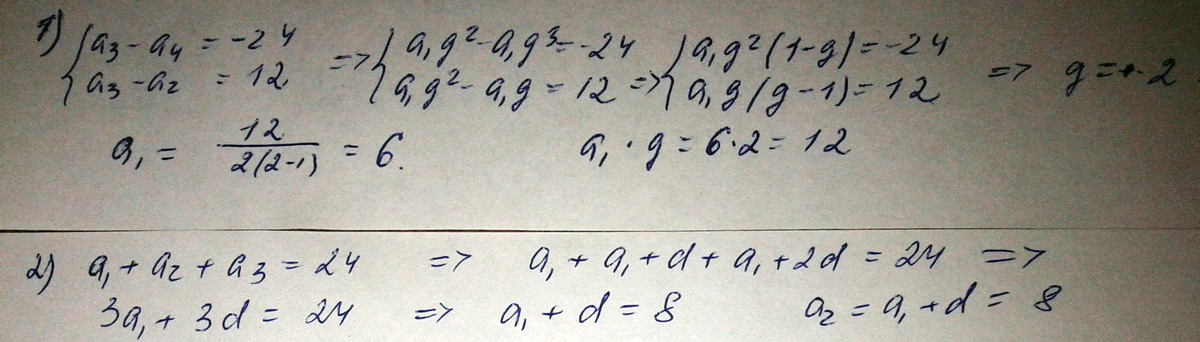 1) { a₃ - a₄ = -24 => { a₁g² - a₁g³ = -24 => { a₁g²(1-g) = -24 => g = + 2
a₃ - a₂ = 12 a₁g² - a₁g = 12 a₁g(g-1) = 12
a₁ = 12 / 2(2-1) = 6. a₁ · g = 6·2 = 12
2) a₁ + a₂ + a₃ = 24 => a₁ + a₁ + d + a₁ + 2d = 24 =>
3a₁ + 3d = 24 => a₁ + d = 8 a₂ = a₁ + d = 8